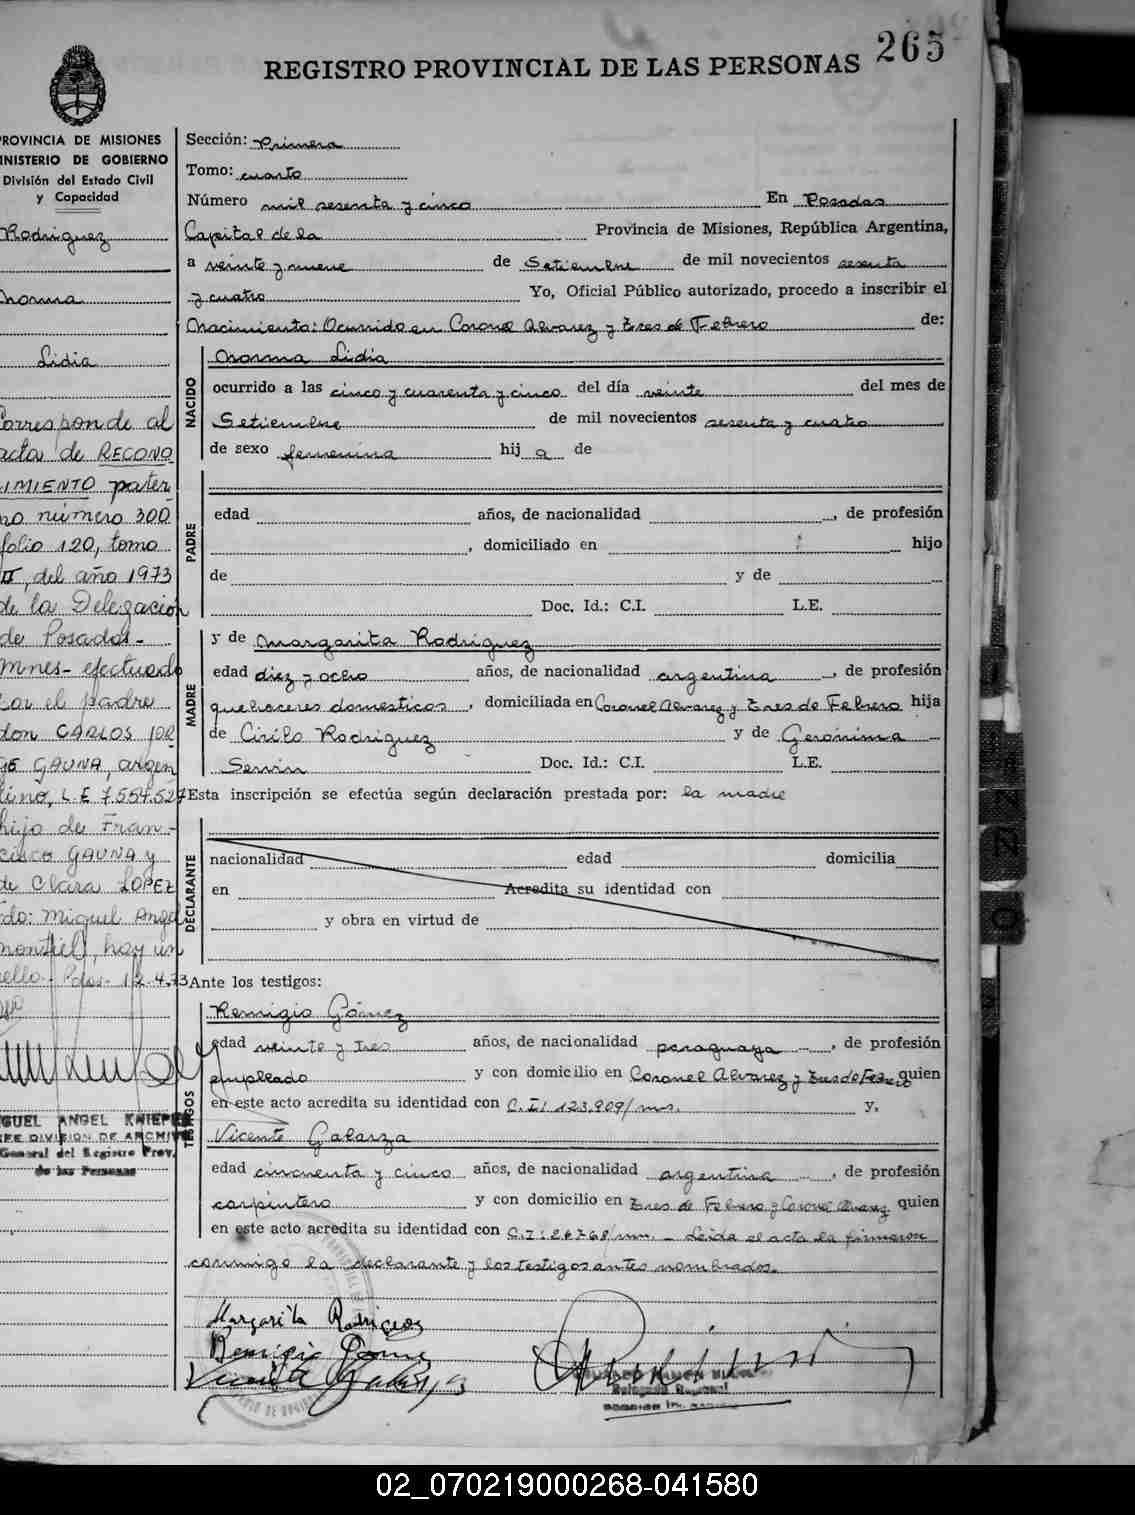 265
REGISTRO PROVINCIAL DE LAS PERSONAS
PROVINCIA DE MISIONES
MINISTERIO DE GOBIERNO
División del Estado Civil
y Capacidad
Rodriguez
norma
Lidia
Corresponde al
acta de RECONO
CIMIENTO pater
no número 300
folio 120, tomo
II, del año 1973
de la Delegación
de Posadas-
Mnes- efectuado
por el padre
don CARLOS JOR
GE GAUNA, argen
tino, L.E 7.554.527
hijo de Fran-
cisco GAUNA y
de Clara LOPEZ
do: Miguel Angel
Montiel, hay un
sello- Pdas- 12.4.73
MIGUEL ANGEL KNIEPER
JEFE DIVISION DE ARCHIVO
General del Registro Prov.
de las Personas
Sección: Primera
Tomo: cuarto
Número mil sesenta y cinco En Posadas
Capital de la Provincia de Misiones, República Argentina,
a veinte y nueve de Setiembre de mil novecientos sesenta
y cuatro Yo, Oficial Público autorizado, procedo a inscribir el
Nacimiento: Ocurrido en Coronel Alvarez y Tres de Febrero de:
NACIDO
Norma Lidia
ocurrido a las cinco y cuarenta y cinco del día veinte del mes de
Setiembre de mil novecientos sesenta y cuatro
de sexo femenina hij a de
PADRE
edad años, de nacionalidad , de profesión
, domiciliado en hijo
de y de
Doc. Id.: C.I. L.E.
MADRE
y de Margarita Rodriguez
edad diez y ocho años, de nacionalidad argentina , de profesión
quehaceres domesticos , domiciliada en Coronel Alvarez y Tres de Febrero hija
de Cirilo Rodriguez y de Gerónima
Servin Doc. Id.: C.I. L.E.
Esta inscripción se efectúa según declaración prestada por: la madre
DECLARANTE
nacionalidad edad domicilia
en Acredita su identidad con
y obra en virtud de
Ante los testigos:
TESTIGOS
Remigio Gómez
edad veinte y tres años, de nacionalidad paraguaya , de profesión
empleado y con domicilio en Coronel Alvarez y Tres de Febrero quien
en este acto acredita su identidad con C.I: 123.909/mns. y,
Vicente Galarza
edad cincuenta y cinco años, de nacionalidad argentina , de profesión
carpintero y con domicilio en Tres de Febrero y Coronel Alvarez quien
en este acto acredita su identidad con C.I: 26768/mns. - Leida el acta la firmaron
conmigo la declarante y los testigos antes nombrados.
Margarita Rodrigues
Remigio Gomez
Vicente Galarza
Delegado Regional
02_070219000268-041580